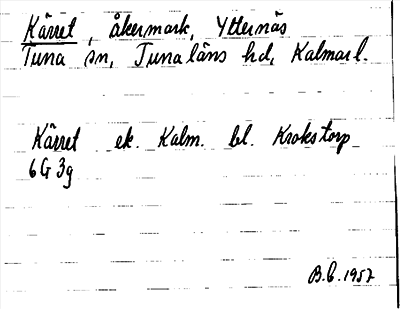 Kärret, åkermark, Ytternäs
Tuna sn, Tunaläns hd, Kalmar l.
Kärret ek. Kalm. bl. Krokstorp
6G 3g
B.C. 1957